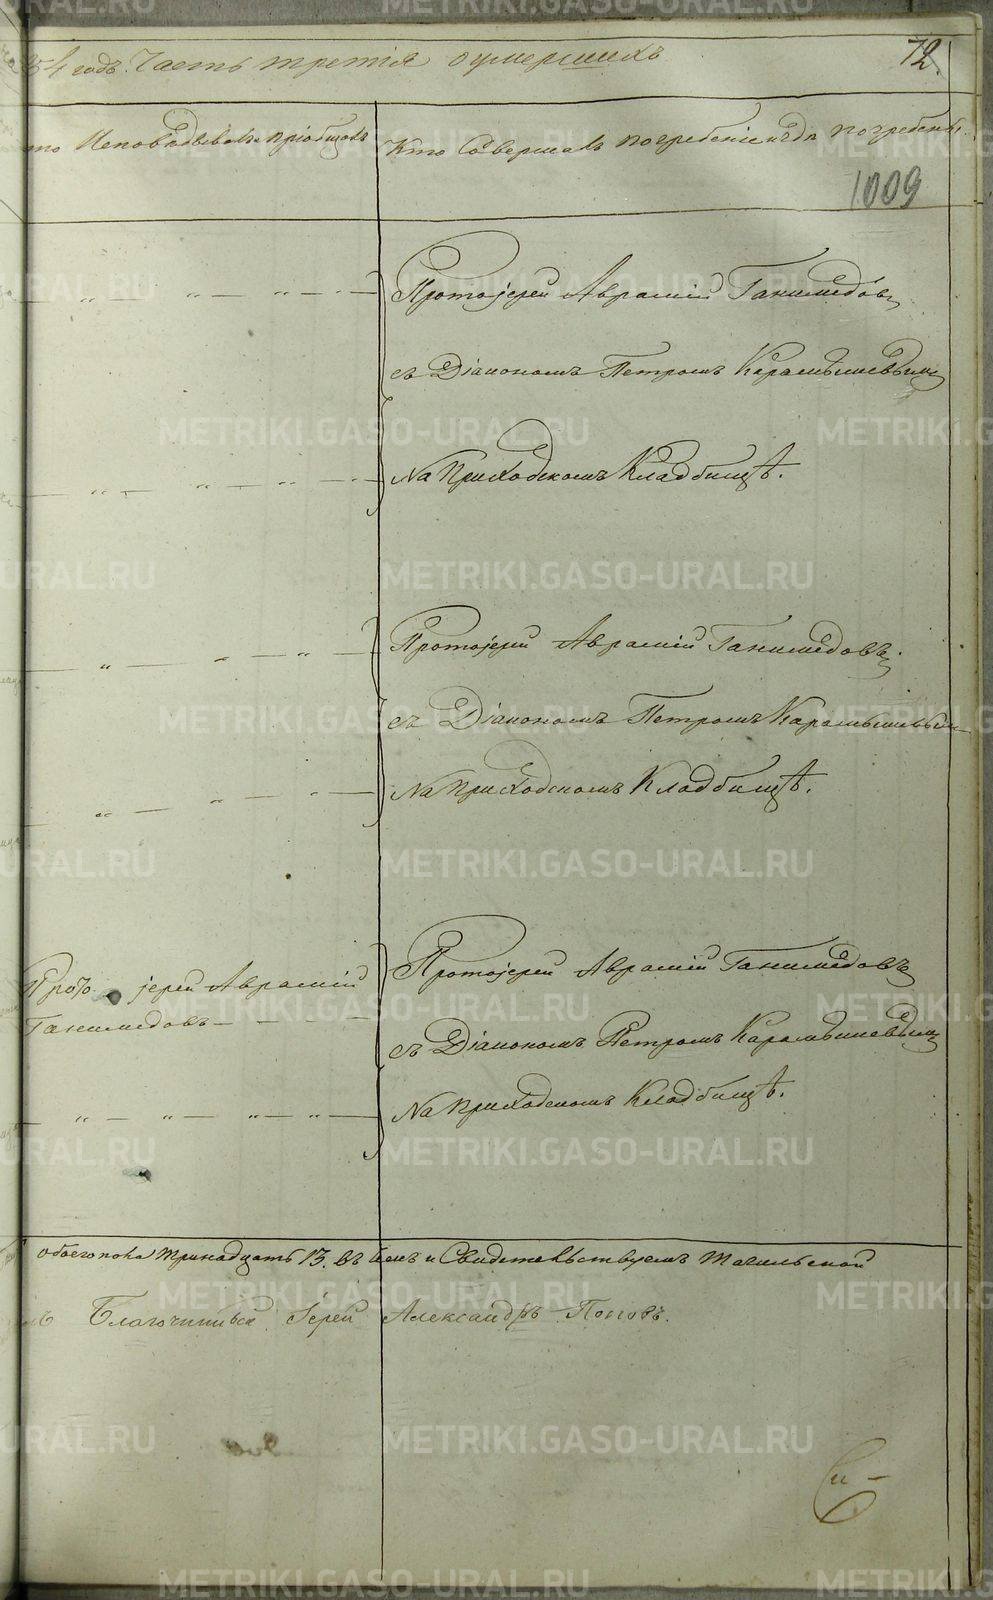 54 годъ. Часть третія оумершихъ
72.
Кто Исповѣдывалъ и пріобщалъ
Кто Совершалъ погребеніе и гдѣ погребены.
1009
Протоіерей Аврамій Ганимедовъ
съ Діакономъ Петромъ Карамышевымъ
На Приходскомъ Кладбищѣ.
Протоіерей Аврамій Ганимедовъ
съ Діакономъ Петромъ Карамышевым
На Приходскомъ Кладбищѣ.
Прото іерей Аврамій
Ганимедовъ
Протоіерей Аврамій Ганимедовъ
съ Діакономъ Петромъ Карамышевымъ
На приходскомъ Кладбищѣ.
обоего пола тринадцать 13. въ чемъ и Свидетельствуемъ Тагильской
Благочинный Іерей Александръ Поповъ.
METRIKI.GASO-URAL.RU